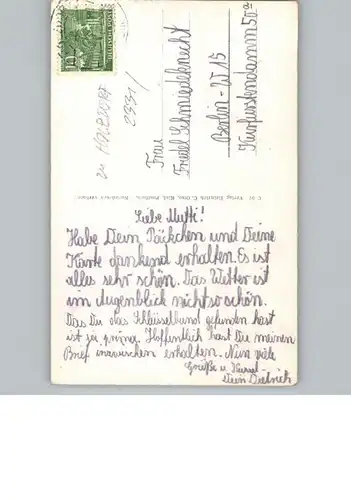 DEUTSCHE POST
Frau
Friedel Schmiedelknecht
Berlin-W 15
Kurfürstendamm 50a
Liebe Mutti!
Habe Dein Päckchen und Deine
Karte dankend erhalten. Es ist
alles sehr schön. Das Wetter ist
im Augenblick nicht so schön.
Das Du das Schlüsselbund gefunden hast
ist ja prima. Hoffentlich hast Du meinen
Brief inzwischen erhalten. Nun viele
Grüße u. Küsse
Dein Dietrich